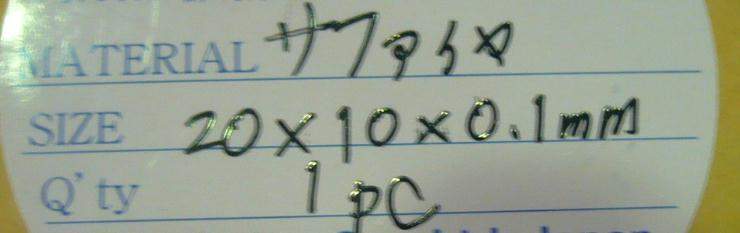 MATERIAL サファイヤ
SIZE 20×10×0.1mm
Q'ty 1 PC